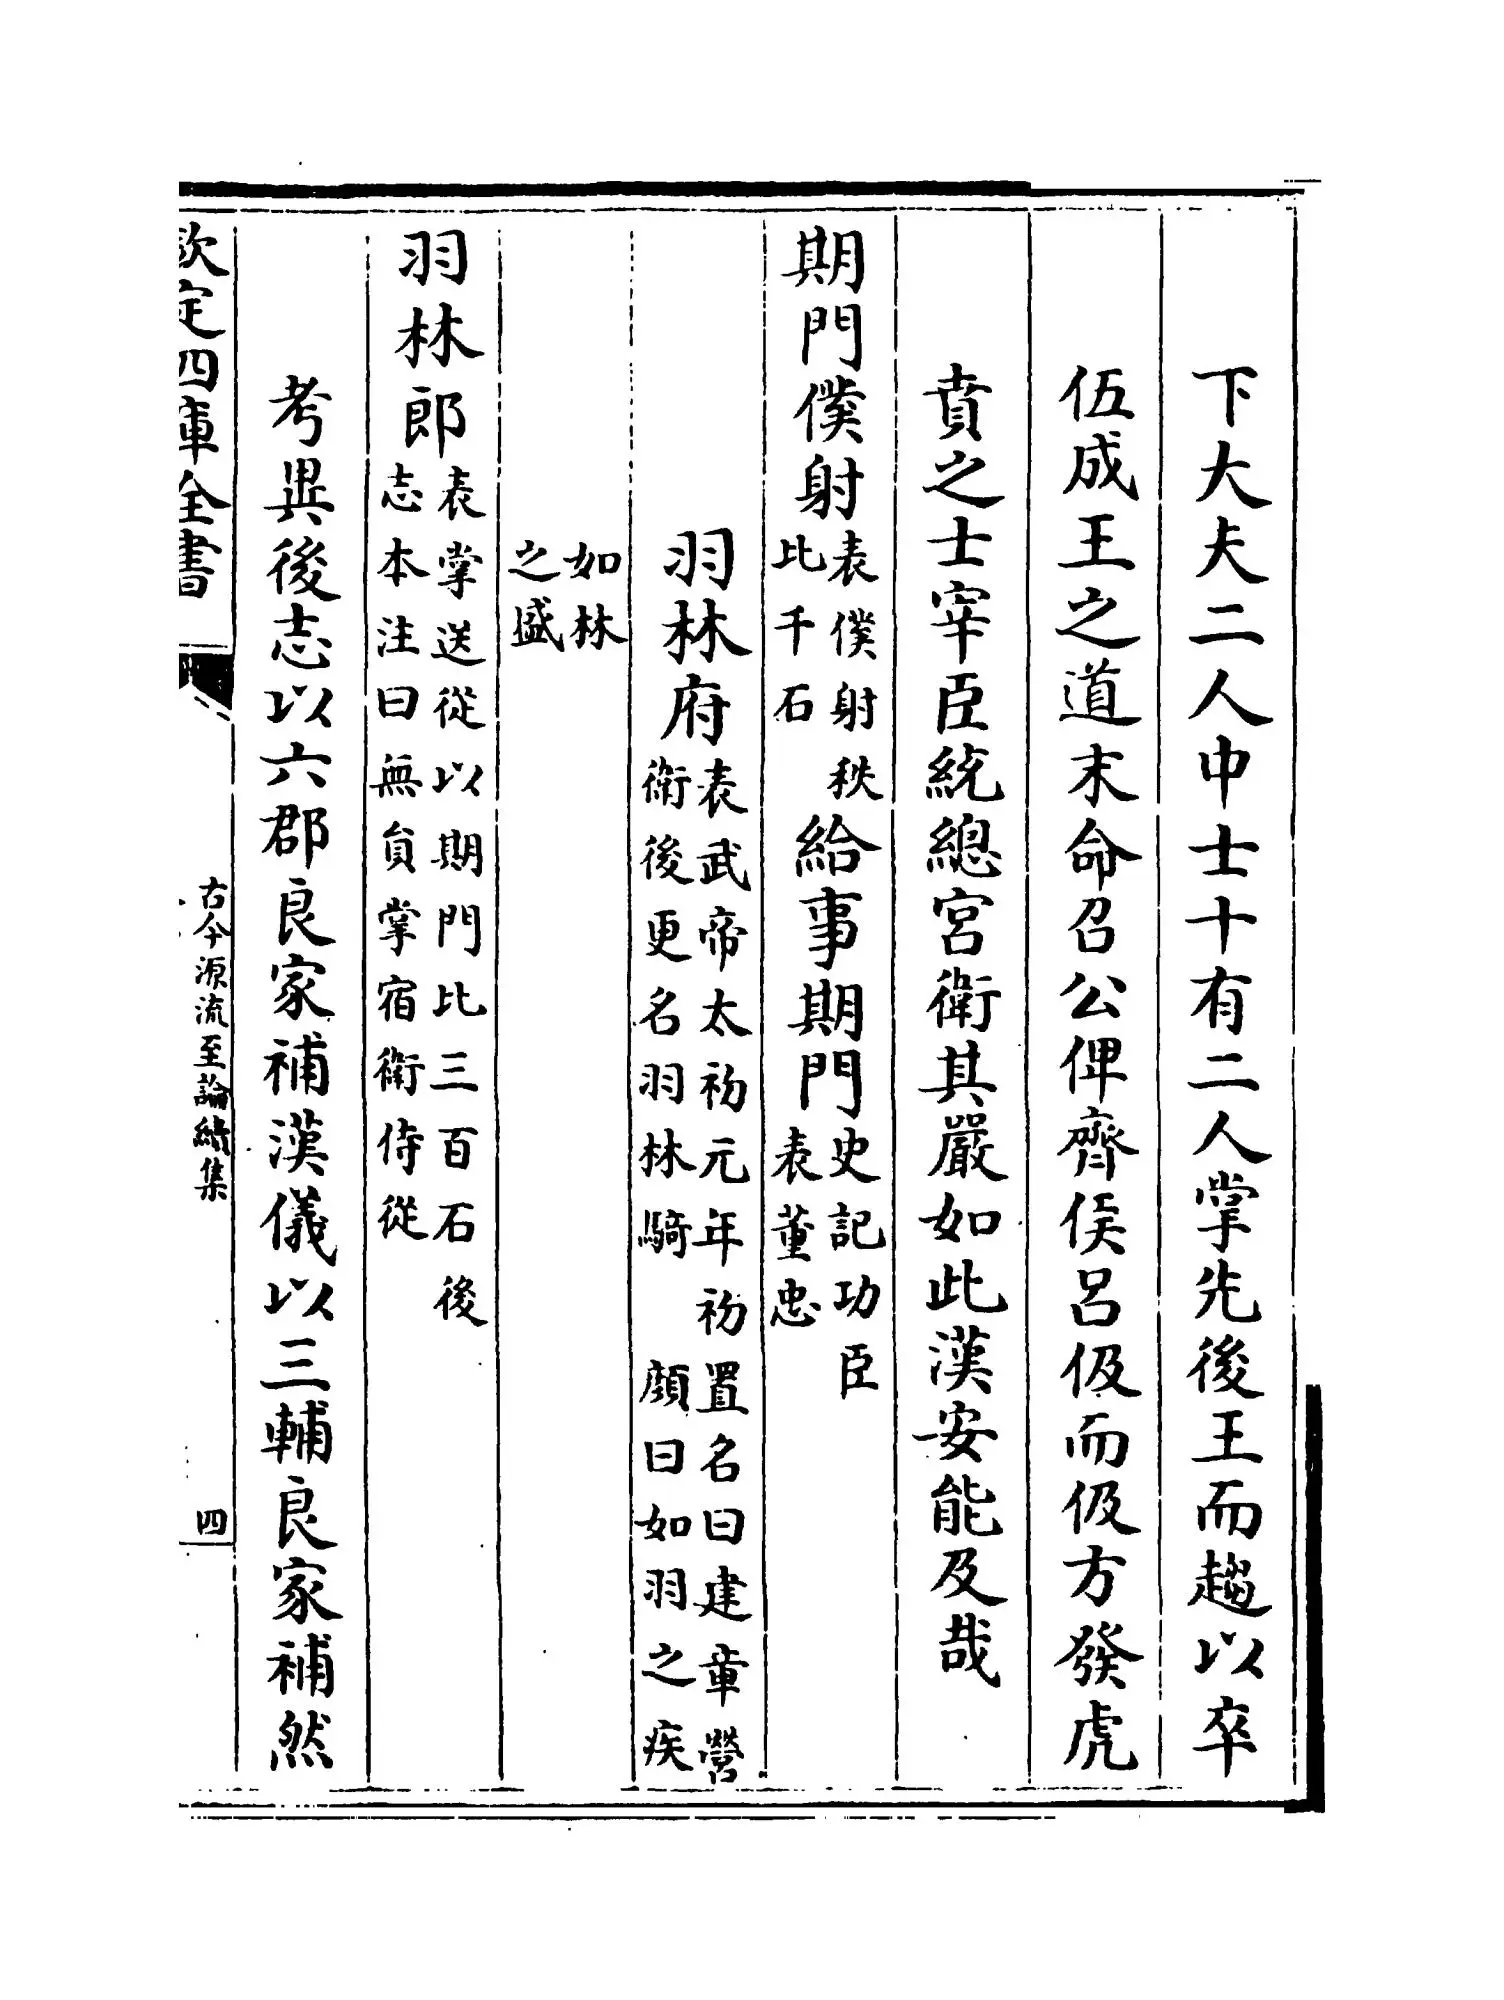 下大夫二人中士十有二人掌先後王而趨以卒
伍成王之道末命召公俾齊侯呂伋而伋方發虎
賁之士宰臣統總宮衛其嚴如此漢安能及哉
期門僕射表僕射秩比千石給事期門史記功臣表董忠
羽林府表武帝太初元年初置名曰建章營衛後更名羽林騎顔曰如羽之疾
如林之盛
羽林郎表掌送從以期門比三百石後志本注曰無員掌宿衛侍從
考異後志以六郡良家補漢儀以三輔良家補然
欽定四庫全書
古今源流至論續集
四